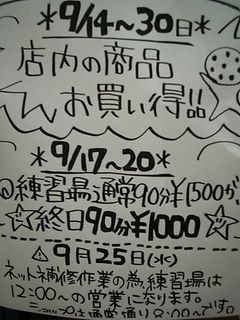 *9/14~30日*
店内の商品
お買い得品
*9/17~20*
練習場通常90分¥1500が
☆終日90分¥1000☆
⚠9月25日(水)
ネット補修作業の為、練習場は
12:00~の営業になります。
ショップは通常通り8:00~です。